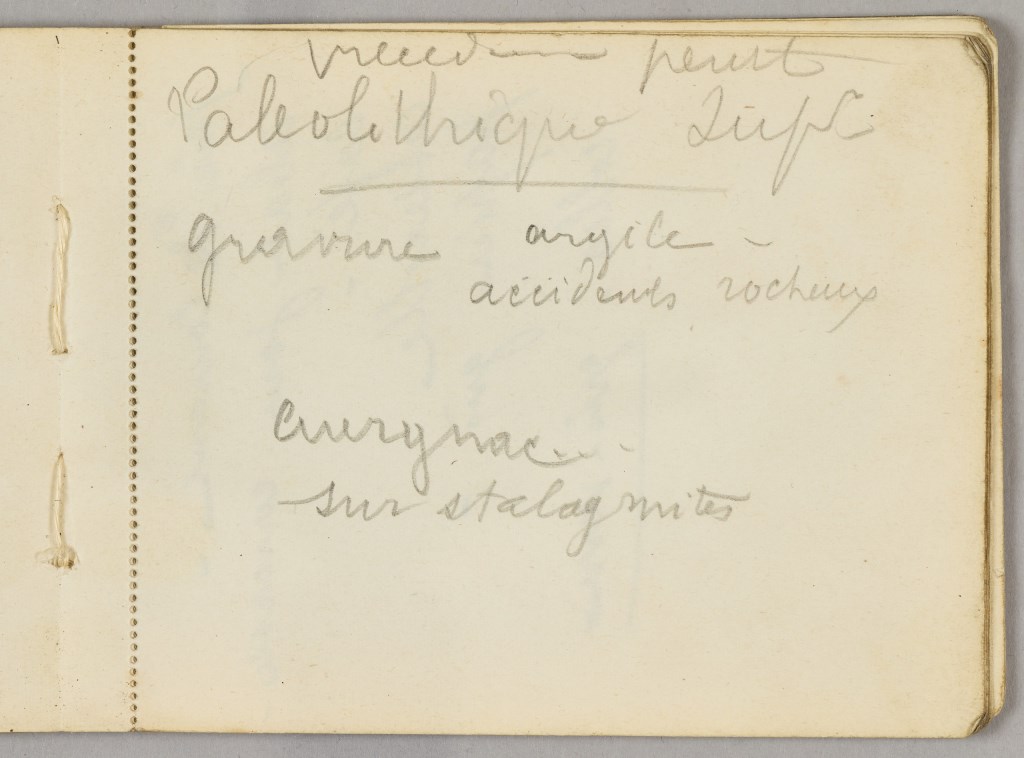 Paleolithique Supr
gravure argile -
accidents rocheux
Cuergnac...
- sur stalagmites